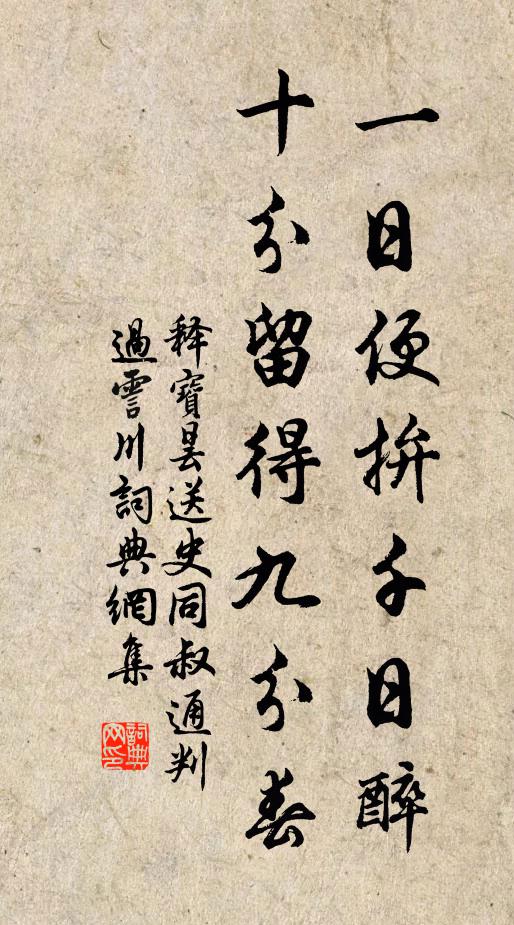 一日便拚千日醉
十分留得九分春
释寶昙送史同叔通判
過霅川詞典網集
詞典
网印